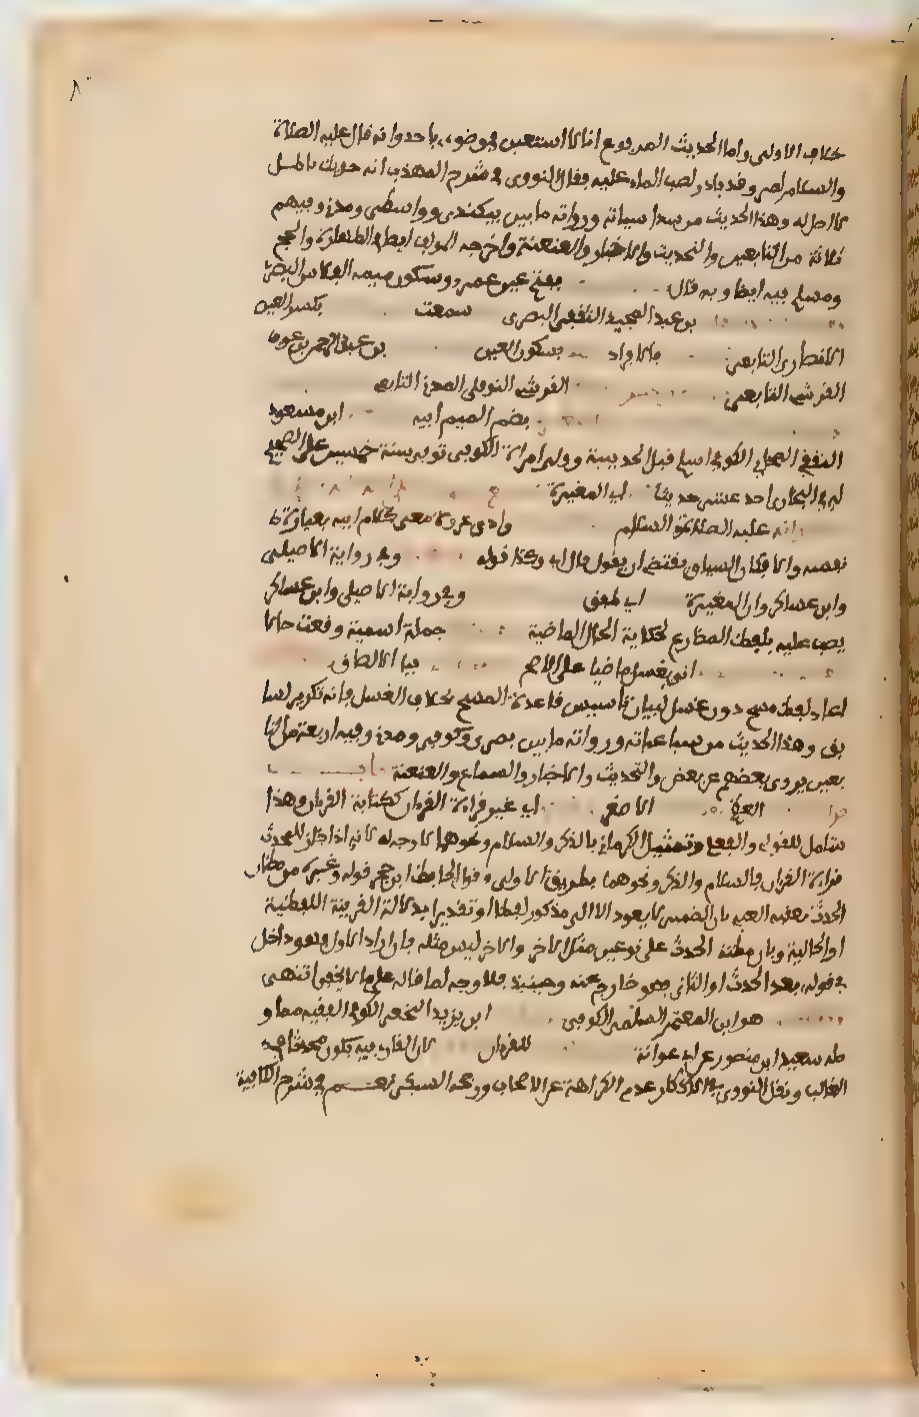 خلاف الاولى واما الحديث المرفوع انا لا استعين في وضوء باحد وانه قال عليه الصلاة
والسلام لعمر وقد بادر لصب الماء عليه فقال النووى في شرح المهذب انه حديث باطل
لا اصل له وهذا الحديث من سداسياته ورواته ما بين بيكندى وواسطى ومدنى وفيهم
ثلاثة من التابعين والتحديث والاخبار والعنعنة واخرجه المولف ايضا في الطهارة والحج
ومسلم فيه ايضا وبه قال بفتح عين عمرو وسكون ميمه الفلاس البصرى
بن عبد المجيد الثقفى البصرى سمعت بكسر العين
الانصارى التابعى بالافراد بسكون العين بن عبد الرحمن بن عوف
القرشى التابعى القرشى النوفلى المدنى التابعى
بضم الميم ابيه ابن مسعود
الثقفى الصحابى الكوفى اسلم قبل الحديبية وولى امرة الكوفى توفى سنة خمسين على الصحيح
له في البخارى احد عشر حديثا اى المغيرة
انه عليه الصلاة والسلام وادى عروة معنى كلام ابيه بعبارة
نفسه والا فكان السياق يقتضى ان يقول قال لى وكذا قوله وفى رواية الاصيلى
وابن عساكر وان المغيرة اى طفق وفى رواية الاصيلى وابن عساكر
يصب عليه بلفظ المضارع لحكاية الحال الماضية جملة اسمية وقعت حالا
اتى بغسل ماضيا على الاصل بيا الالصاق
اعاد لفظ مسح دون غسل لبيان تاسيس قاعدة المسح بخلاف الغسل فانه تكرير لسا
بق وهذا الحديث من سباعياته ورواته ما بين بصرى وكوفى ومدنى وفيه اربعة من التا
بعين يروى بعضهم عن بعض والتحديث والاخبار والسماع والعنعنة
الاصغر اى غير قراءة القرءان ككتابة القرءان وهذا
شامل للقول والفعل وتمثيل الكرمانى بالذكر والسلام ونحوهما لا وجه له لانه اذا جاز للمحدث
قراءة القرءان فالسلام والذكر ونحوهما بطريق الاولى وقول الحافظ ابن حجر قوله وغيره من مظان
الحدث تعقبه العينى بان الضمير لا يعود الا الى مذكور لفظا او تقديرا بدلالة القرينة اللفظية
او الحالية وبان مظنة الحدث على نوعين مثل الاخر والاخر ليس مثله فان اراد الاول فهو داخل
في قوله بعد الحدث او الثانى فهو خارج عنه وحينئذ فلا وجه لما قاله على ما لا يخفى انتهى
هو ابن المعتمر السلمى الكوفى ابن يزيد النخعى الكوفى الفقيه مما و
صله سعيد ابن منصور عن ابى عوانة للقرءان لان القارى فيه يكون محدثا في
الغالب ونقل النووى في الاذكار عدم الكراهة عن الاصحاب ورجحه السبكى نعم في شرح الكفاية